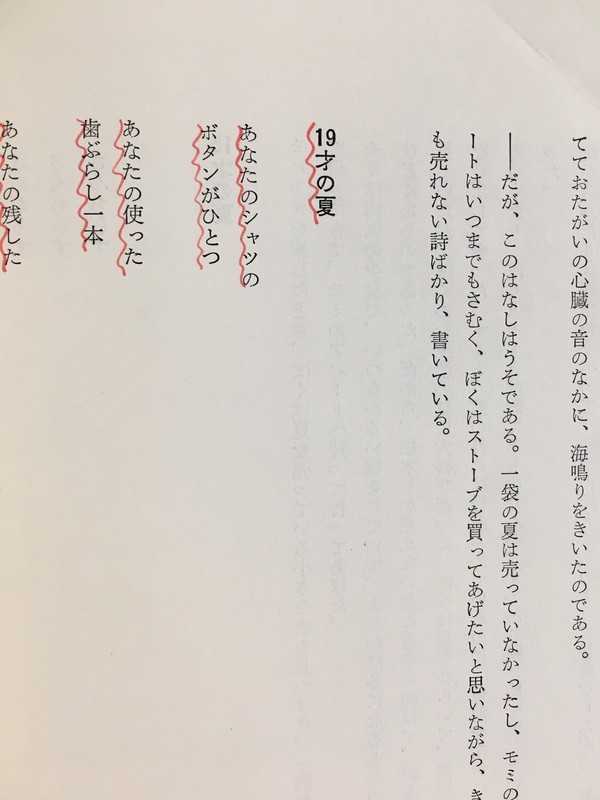 てておたがいの心臓の音のなかに、海鳴りをきいたのである。
――だが、このはなしはうそである。一袋の夏は売っていなかったし、モミの
ートはいつまでもさむく、ぼくはストーブを買ってあげたいと思いながら、き
も売れない詩ばかり、書いている。
19才の夏
あなたのシャツの
ボタンがひとつ
あなたの使った
歯ぶらし一本
あなたの残した